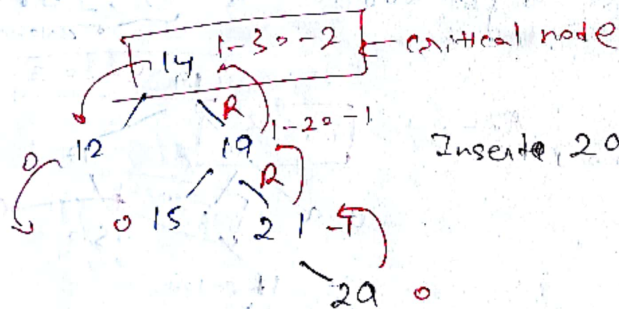 14 1-3=-2 critical node
R
0 12 19 1-2=-1 Inserte, 29
R
0 15 21 -1
29 0